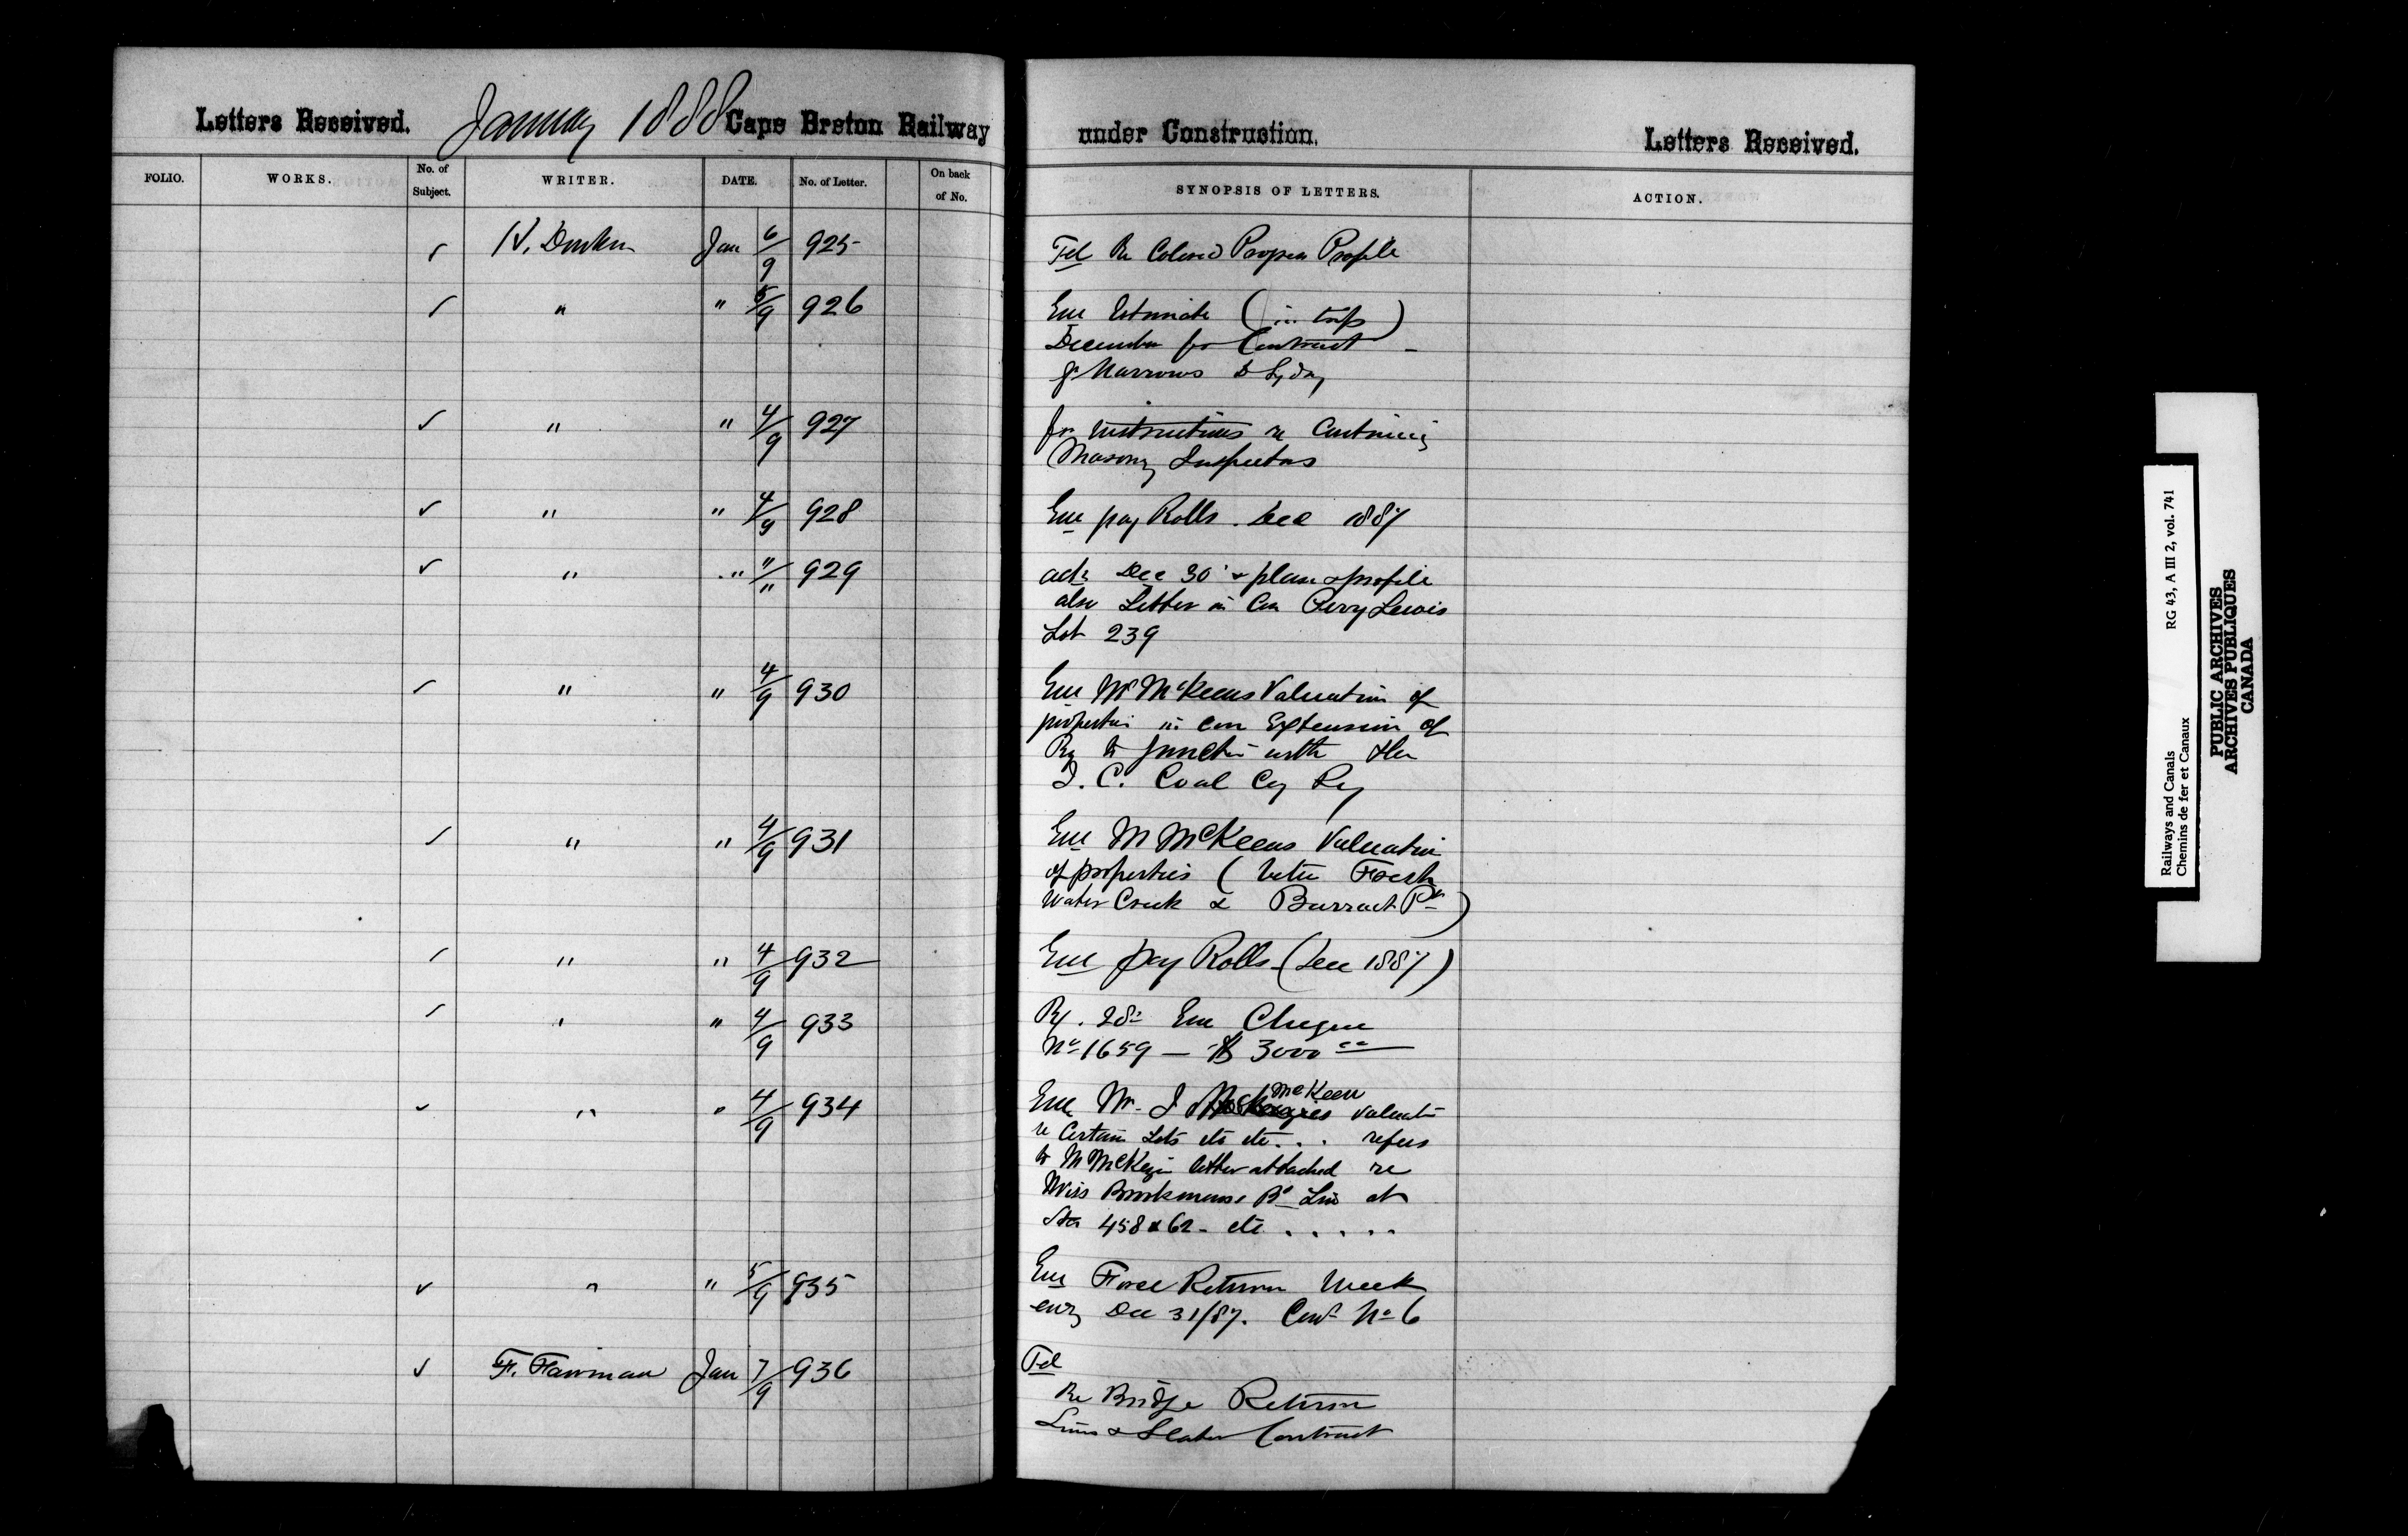 Letters Received. January 1888 Cape Breton Railway under Construction. Letters Received.
FOLIO. WORKS. No. of Subject. WRITER. DATE. No. of Letter. On back of No. SYNOPSIS OF LETTERS. ACTION.
Jan 6/9 925 Tel Re Colored Progress Profile
" " 5/9 926 Enc Estimate (in trip)
December for Contract
Gd Narrows to Sydney
" " 4/9 927 for instructions re Continuing
Masonry Inspectors
" " 4/9 928 Enc pay Rolls. Dec 1887
" " "/" 929 ack Dec 30 & plan & profile
also Letter in Con Perry Lewis
Lot 239
" " 4/9 930 Enc Mr McKeens Valuation of
properties in con Extension of
Ry to Junction with the
I. C. Coal Coy Ry
" " 4/9 931 Enc Mr McKeens Valuation
of properties (betn Fresh
Water Creek & Barrack Pt)
" " 4/9 932 Enc pay Rolls (Dec 1887)
" " 4/9 933 Ry. 28 Enc Cheque
No 1659 — $3000 00
" " 4/9 934 Enc Mr. I McKeen valuatn
re Certain Lots etc etc . . . refers
to Mr McKenzie letter attached re
Miss at
Sta 458 & 62 - etc . . . . .
" " 5/9 935 Enc Force Return Week
endg Dec 31/87. Cont No 6
F. Jan 7/9 936 Tel
Re Bridge Return
Sims & Slater Contract
RG 43, A III 2, vol. 741
Railways and Canals
Chemins de fer et Canaux
PUBLIC ARCHIVES
ARCHIVES PUBLIQUES
CANADA